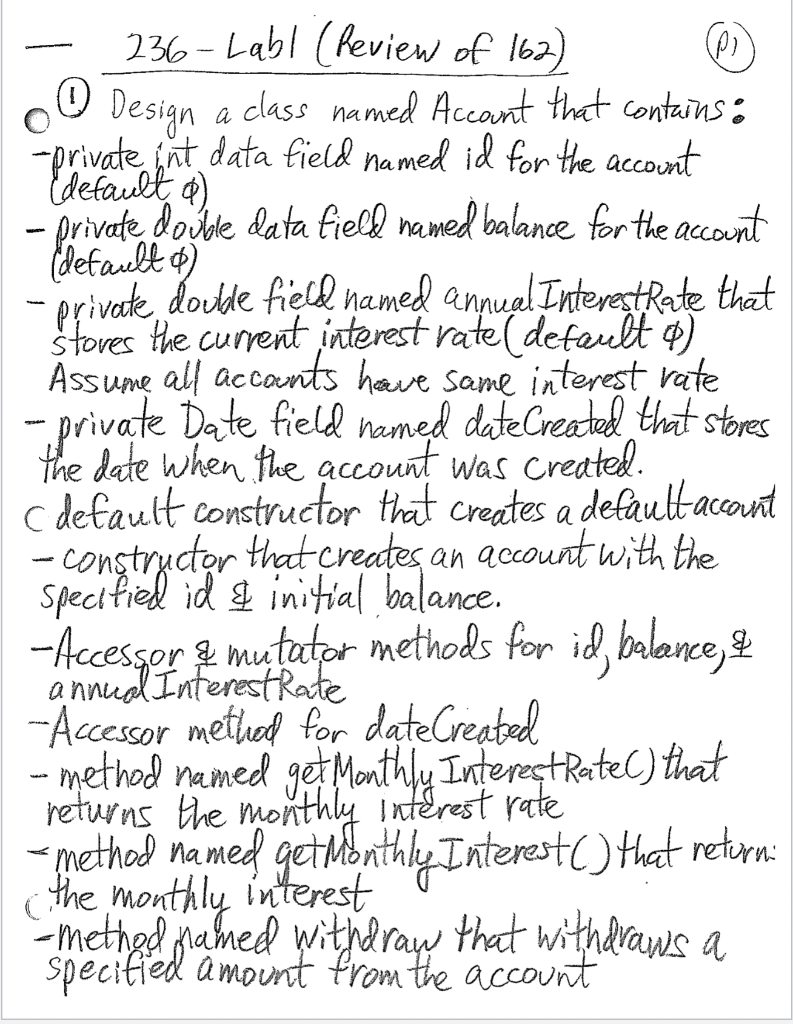 236 - Lab1 (Review of 162)
P1
① Design a class named Account that contains:
- private int data field named id for the account
(default φ)
- private double data field named balance for the account
(default φ)
- private double field named annualInterestRate that
stores the current interest rate (default φ)
Assume all accounts have same interest rate
- private Date field named dateCreated that stores
the date when the account was created.
default constructor that creates a default account
- constructor that creates an account with the
specified id & initial balance.
- Accessor & mutator methods for id, balance, &
annualInterestRate
- Accessor method for dateCreated
- method named getMonthlyInterestRate() that
returns the monthly interest rate
- method named getMonthlyInterest() that return
the monthly interest
- method named withdraw that withdraws a
specified amount from the account